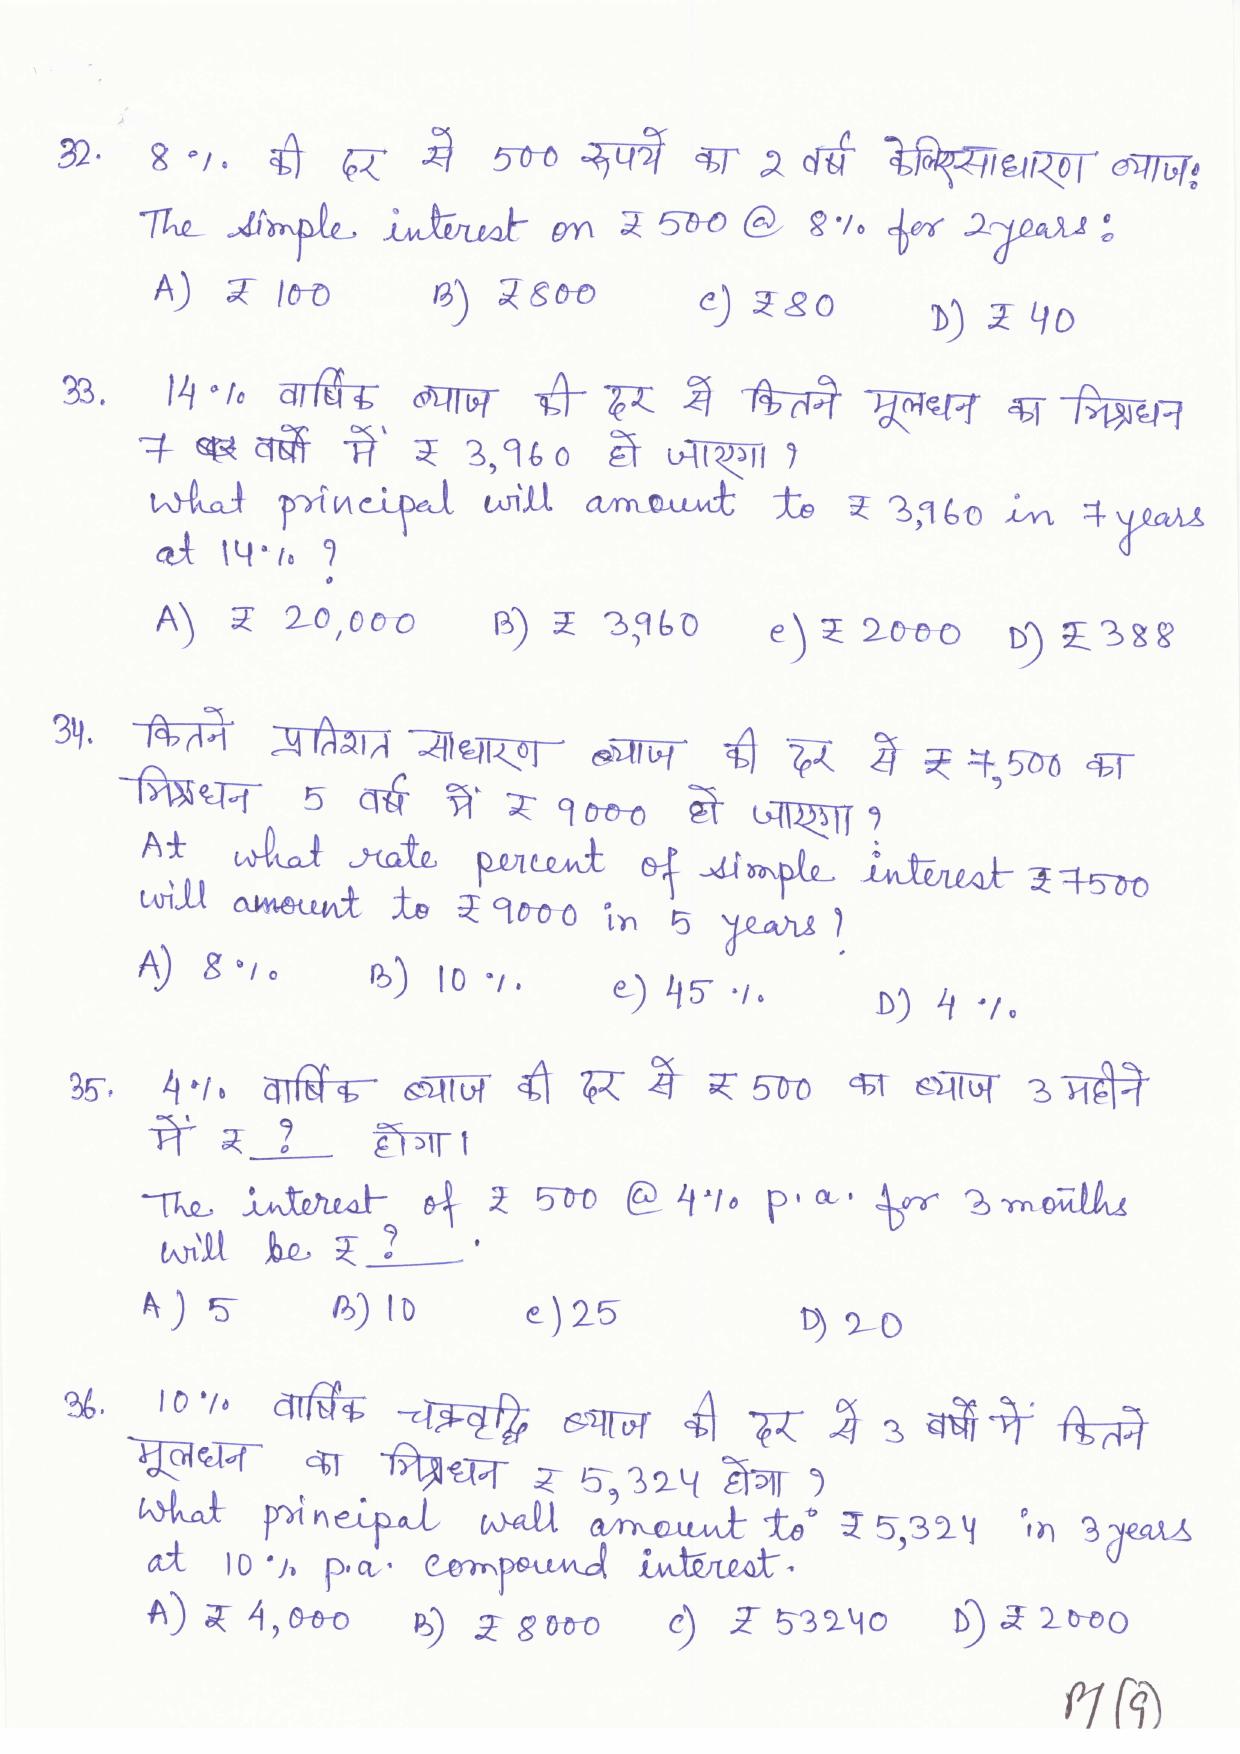 32. 8% की दर से 500 रूपये का 2 वर्ष केलिए साधारण ब्याज:
The simple interest on ₹ 500 @ 8% for 2 years:
A) ₹ 100 B) ₹ 800 C) ₹ 80 D) ₹ 40
33. 14% वार्षिक ब्याज की दर से कितने मूलधन का मिश्रधन
7 वर्षो में ₹ 3,960 हो जाएगा ?
What principal will amount to ₹ 3,960 in 7 years
at 14% ?
A) ₹ 20,000 B) ₹ 3,960 C) ₹ 2000 D) ₹ 388
34. कितने प्रतिशत साधारण ब्याज की दर से ₹ 7,500 का
मिश्रधन 5 वर्ष में ₹ 9000 हो जाएगा ?
At what rate percent of simple interest ₹ 7500
will amount to ₹ 9000 in 5 years ?
A) 8% B) 10% C) 45% D) 4%
35. 4% वार्षिक ब्याज की दर से ₹ 500 का ब्याज 3 महीने
में ₹ __?__ होगा।
The interest of ₹ 500 @ 4% p.a. for 3 months
will be ₹ __?__ .
A) 5 B) 10 C) 25 D) 20
36. 10% वार्षिक चक्रवृद्धि ब्याज की दर से 3 वर्षो में कितने
मूलधन का मिश्रधन ₹ 5,324 होगा ?
What principal wall amount to ₹ 5,324 in 3 years
at 10% p.a. compound interest.
A) ₹ 4,000 B) ₹ 8000 C) ₹ 53240 D) ₹ 2000
(9)